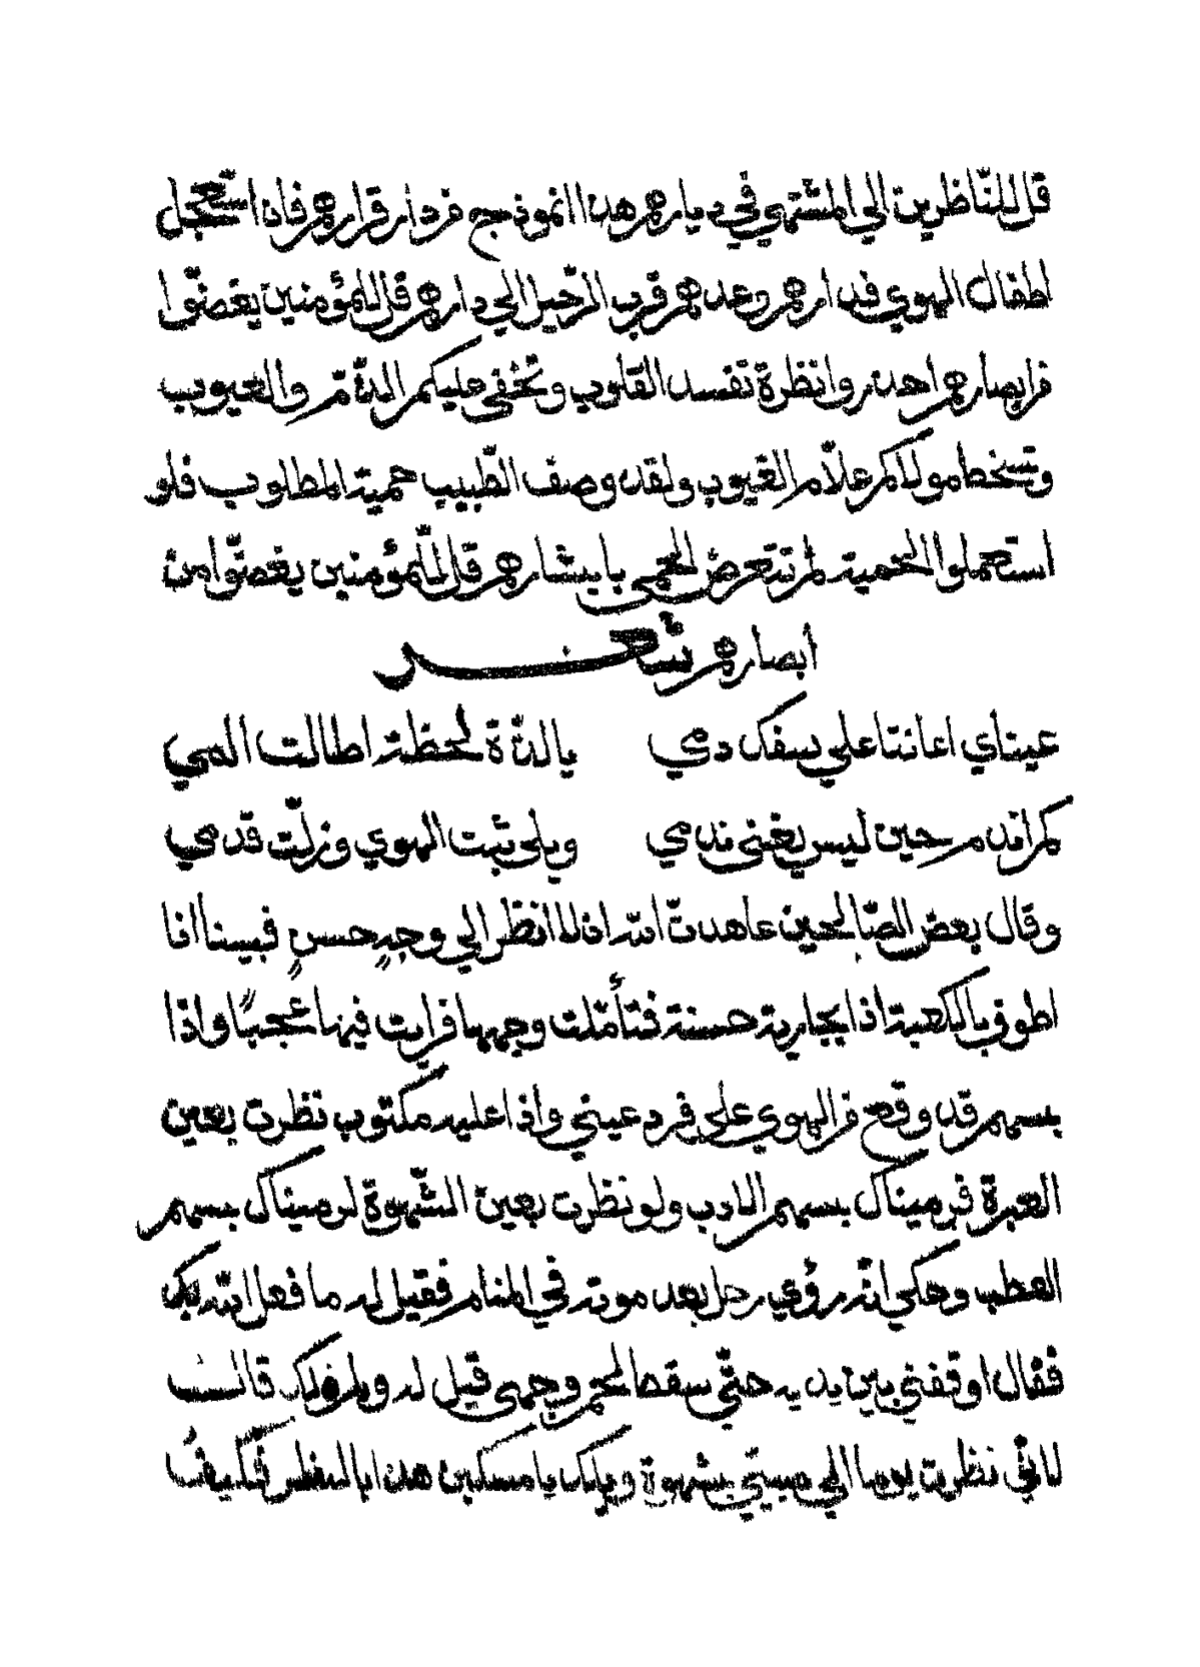 قل للنّاظرين الي المشتهي في ديارهم هذا انموذج من دار قرارهم فان استعجل
اطفال الهوي فدارهم وعدهم قرب الرّحيل الي دارهم قل للمؤمنين يغضّوا
من ابصارهم احذروا نظرة تفسد القلوب وتخفي عليكم الذّم والعيوب
وتسخط مولاكم علاّم الغيوب ولقد وصف الطّبيب حمية المطلوب فلو
استعملوا الحمية لم تتعرض الحمى بابشارهم قل للمؤمنين يغضّوا من
أبصارهم شعر
عيناي اعانتا علي سفك دمي يا لذّة لحظة اطالت المي
كم اندم حين ليس يغني ندمي ويلي ثبت الهوي وزلّت قدمي
وقال بعض الصّالحين عاهدتّ الله ان لا انظر الي وجهٍ حسنٍ فبينا انا
اطوف بالكعبة اذا بجارية حسنة فتأمّلت وجهها فرايت فيها عجبًا واذا
بسهم قد وقع من الهوي علي فرد عيني واذا عليه مكتوب نظرت بعين
العبرة فرميناك بسهم الادب ولو نظرت بعين الشّهوة لرميناك بسهم
العطب وحكي انّه رؤي رجل بعد موته في المنام فقيل له ما فعل الله بك
فقال اوقفني بين يديه حتّي سقط لحم وجهي قيل له ولم ذلك قال
لانّي نظرت يوما الي صبيّ بشهوة ويلك يا مسكين هذا بالنظر فكيف